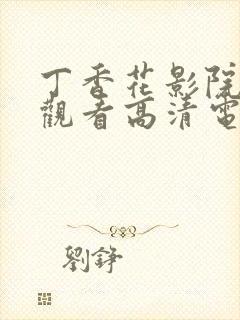 丁香花影院
觀看高清電
劉錚